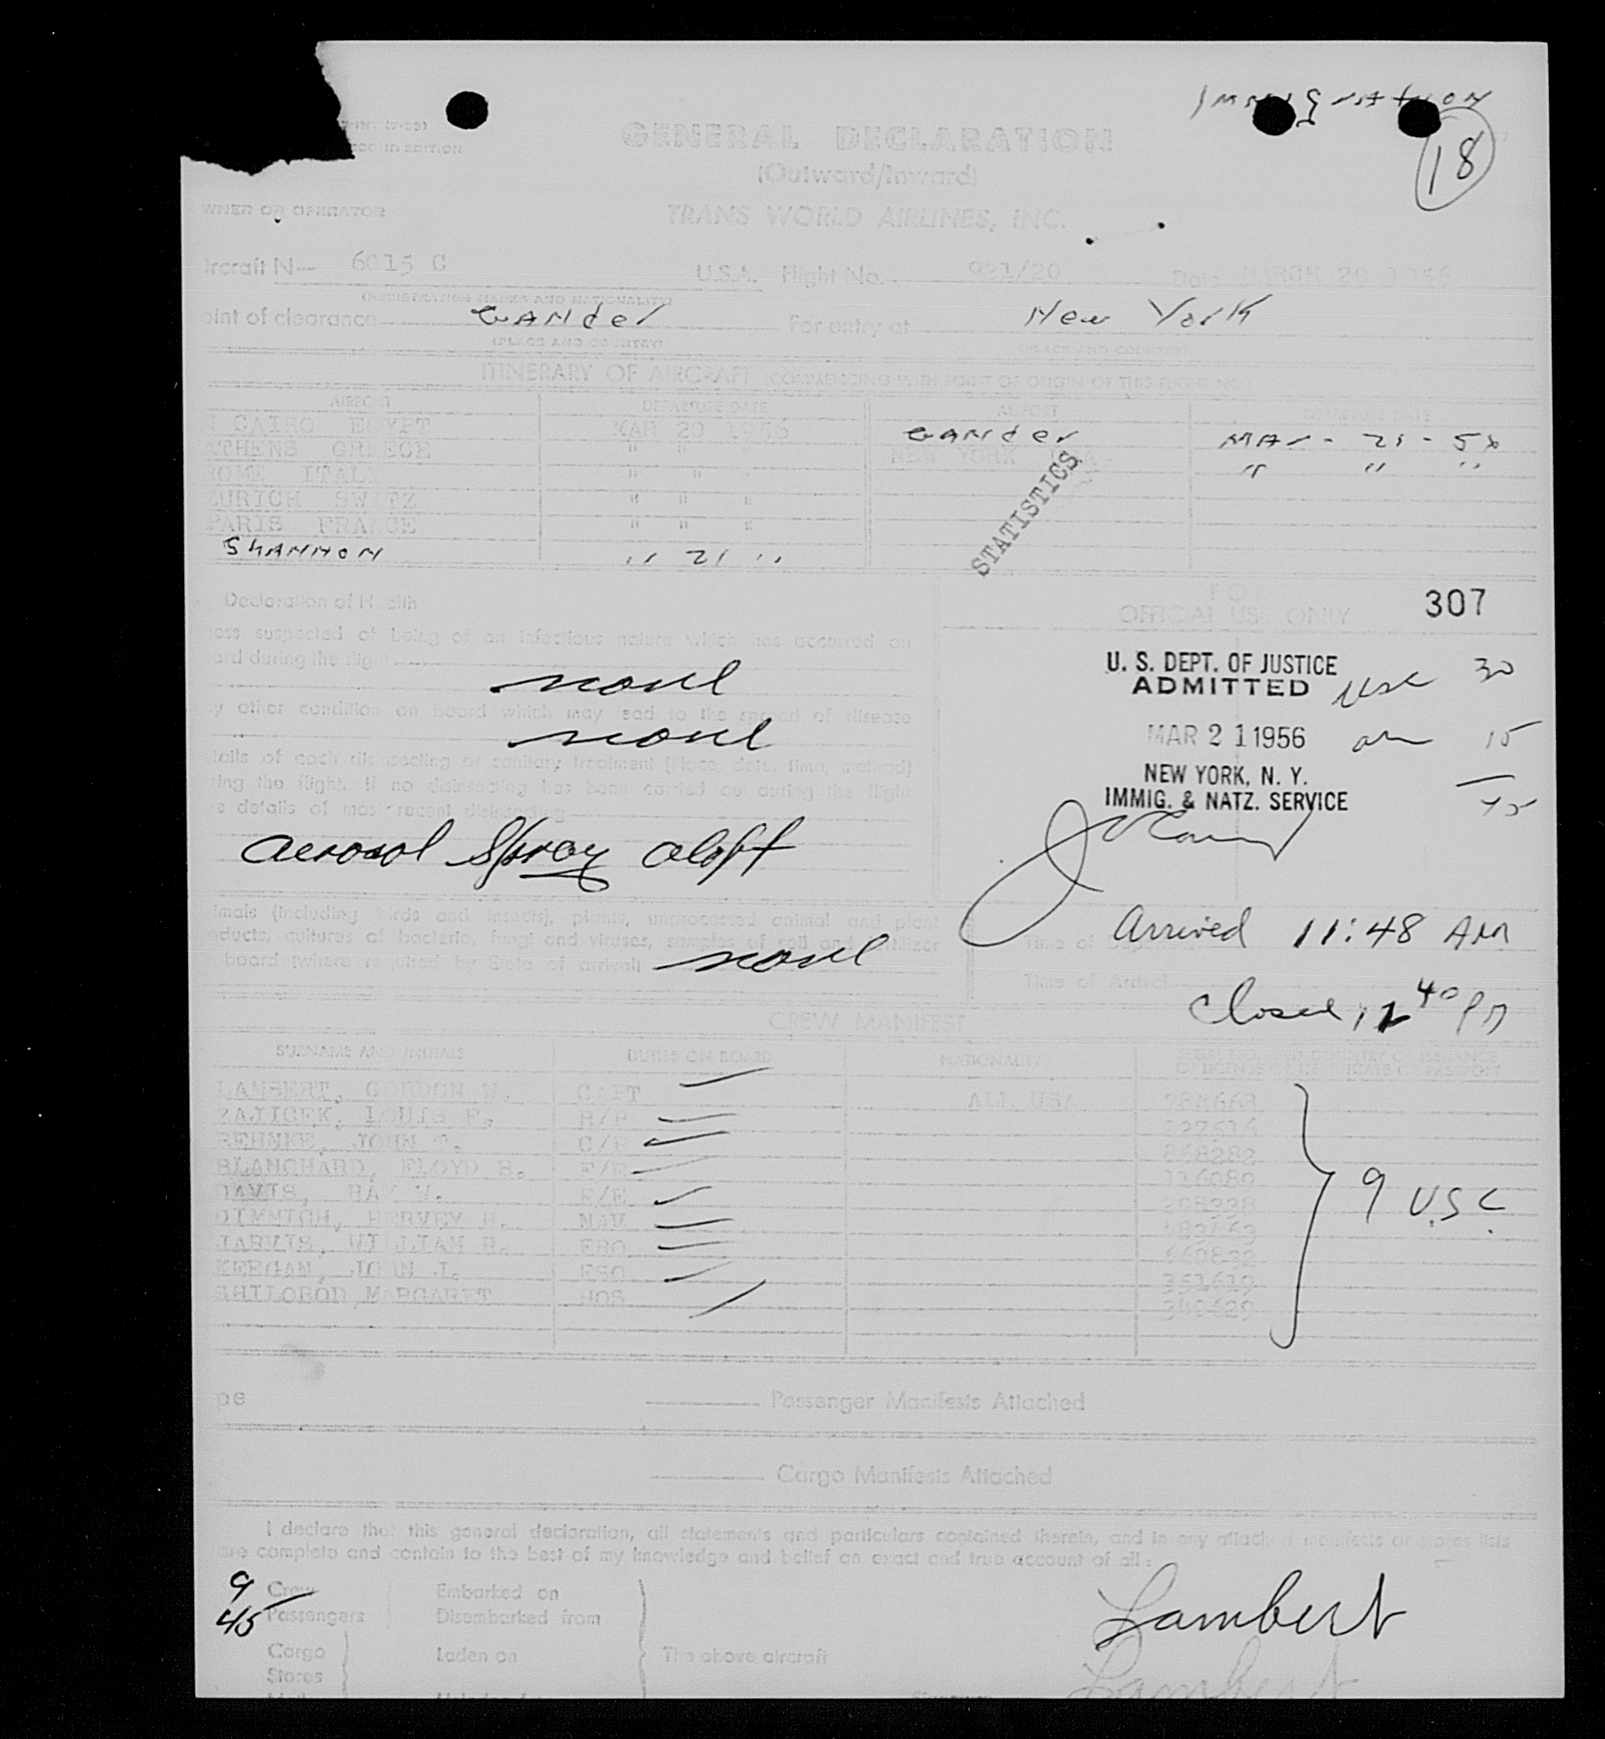 Immigration
18
EDITION
GENERAL DECLARATION
(Outward/Inward)
WNER OR OPERATOR
TRANS WORLD AIRLINES, INC.
ircraft N— 6015 C U.S.A. Flight No. 921/20 Date MARCH 20 1956
(REGISTRATION MARKS AND NATIONALITY)
oint of clearance Gander For entry at New York
(PLACE AND COUNTRY) (PLACE AND COUNTRY)
ITINERARY OF AIRCRAFT (COMMENCING WITH POINT OF ORIGIN OF THIS FLIGHT NO.)
AIRPORT DEPARTURE DATE AIRPORT DEPARTURE DATE
CAIRO EGYPT MAR 20 1956 Gander Mar - 21 - 56
ATHENS GREECE " " " NEW YORK " " "
ROME ITALY " " "
ZURICH SWITZ " " "
PARIS FRANCE " " "
SHANNON " 21 "
STATISTICS
Declaration of Health
FOR
OFFICIAL USE ONLY 307
ness suspected of being of an infectious nature which has occurred on
ard during the flight
none
ny other condition on board which may lead to the spread of disease
none
tails of each disinsecting or sanitary treatment (place, date, time, method)
ring the flight. If no disinsecting has been carried out during the flight
e details of most recent disinsecting
aerosol Spray aloft
U. S. DEPT. OF JUSTICE
ADMITTED USC 30
MAR 21 1956 15
NEW YORK, N. Y.
IMMIG. & NATZ. SERVICE 45
imals (including birds and insects), plants, unprocessed animal and plant
oducts, cultures of bacteria, fungi and viruses, samples of soil and fertilizer
board (where required by State of arrival) none
Arrived 11:48 AM
Time of Arrival
Closed 12 40 PM
CREW MANIFEST
SURNAME AND INITIALS DUTIES ON BOARD NATIONALITY
LAMBERT, GORDON W. CAPT ALL USA
ZAJICEK, LOUIS F. R/P
BEHNKE, JOHN C/P 868282
BLANCHARD, FLOYD B. F/E 116080
DAVIS, RAY W. F/E
DIMMICH, HERVEY H. NAV
JARVIS, WILLIAM H. ESO
KEEGAN, JOHN J. ESO 351619
SHILOBOD, MARGARET HOS 340429
9 U.S.C.
pe Passenger Manifests Attached
Cargo Manifests Attached
I declare that this general declaration, all statements and particulars contained therein, and in any attached manifests or stores lists
are complete and contain to the best of my knowledge and belief an exact and true account of all:
9 Crew Embarked on
45 Passengers Disembarked from
Lambert
Cargo Laden on The above aircraft
Stores
Lambert